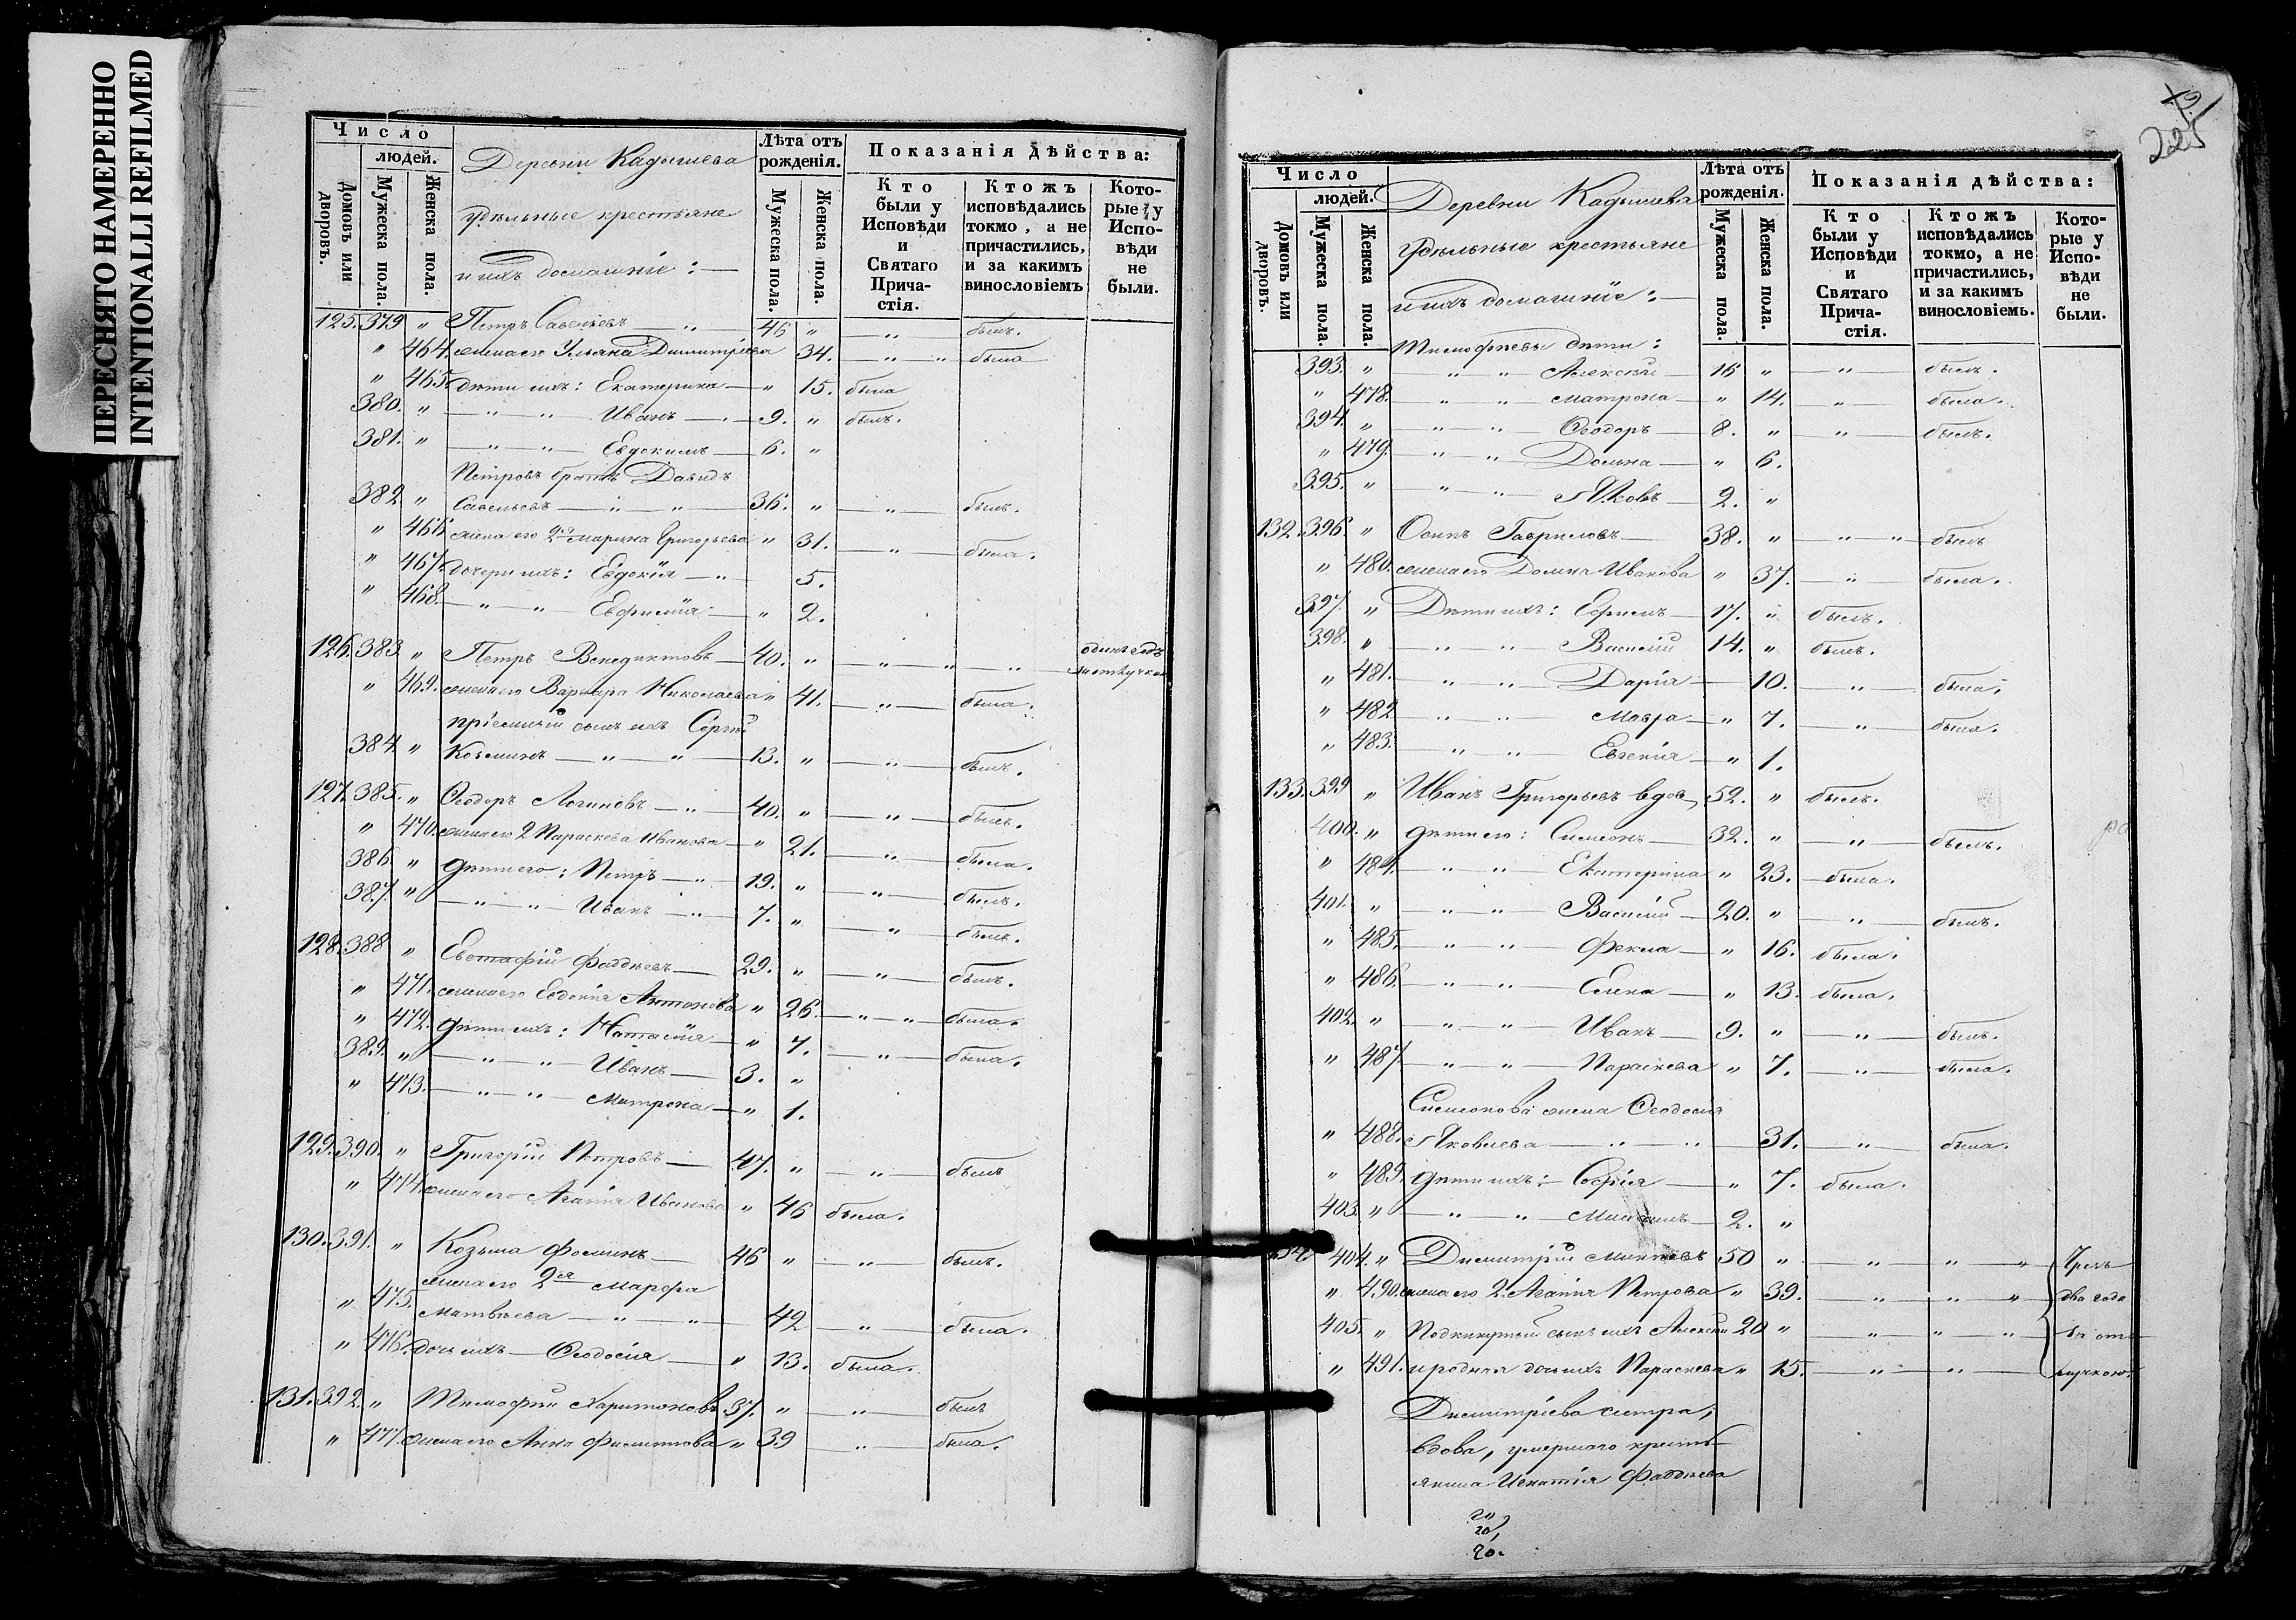 ПЕРЕСНЯТО НАМЕРЕННО
INTENTIONALLI REFILMED
Число
людей.
Домовъ или дворовъ.
Мужеска пола.
Женска пола.
Деревни Кадышева
удѣльные крестьяне
и ихъ домашніе :—
Лѣта отъ рожденія.
Мужеска пола.
Женска пола.
Показанія дѣйства:
Кто были у Исповѣди и Святаго Причастія.
Ктожъ исповѣдались токмо, а не причастились, и за какимъ винословіемъ
Которые у Исповѣди не были.
125. 379 " Петръ Савельевъ — " — 46 " — " — былъ.
" 464. жена его Ульяна Димитріева 34. — " " — была
" 465. дѣти ихъ: Екатерина — " 15. была
380. " — " — " — Иванъ — 9. " былъ.
381. " — " — " — Евдокимъ — 6. "
Петровъ братъ Давидъ
382. " Савельевъ — " — " — 36. " — " — былъ.
" 466. жена его 2я Марина Григорьева " 31. — " — была.
" 467. дочери ихъ: Евдокія — " 5.
" 468. — " — " — Евфимія — " 2.
126. 383. " Петръ Венедиктовъ — 40. " — " — " — " — одинъ годъ
" 469. жена его Варвара Николаева " 41. — " — была.
пріемный сынъ ихъ Сергій
384. " Козминъ — " — " — 13. " — " — былъ.
127. 385. " Ѳеодоръ Логиновъ — " — 40. " — " — былъ.
" 470. жена его 2 Параскева Иванова — " 21. — " — была.
386. " дѣти его: Петръ — " — 19. " — " — былъ.
387. " — " — " — Иванъ — " — 7. " — " — былъ.
128. 388 " Евстафій Фаддѣевъ — 29. " — " — былъ.
" 471. жена его Евдокія Антонова " 26. — " " — была.
" 472. дѣти ихъ: Настасія — " 7. — " — была.
389. " — " — " — Иванъ — 3. "
" 473. — " — " — Матрона — " 1.
129. 390. " Григорій Петровъ — 47. " — " — былъ
" 474. жена его Агапія Иванова " 46 была.
130. 391. " Козьма Фоминъ — 46 " — " — былъ.
жена его 2ая Марфа
" 475. Матвѣева — " — " — 42 — " — была.
" 476. дочь ихъ — Ѳеодосія — " 13. была.
131. 392. " Тимофей Харитоновъ 37. " — " — былъ
" 477. жена его Анна Филиппова " 39 — " — была.
225
Число
людей.
Домовъ или дворовъ.
Мужеска пола.
Женска пола.
Деревни Кадышева
удѣльные крестьяне
и ихъ домашніе :—
Лѣта отъ рожденія.
Мужеска пола.
Женска пола.
Показанія дѣйства:
Кто были у Исповѣди и Святаго Причастія.
Ктожъ исповѣдались токмо, а не причастились, и за какимъ винословіемъ.
Которые у Исповѣди не были.
Тимофѣевы дѣти :
393. " — " — " — Алексѣй — 16 " — " — былъ.
" 478. — " — " — Матрона — " 14. " — была.
394. " — " — " — Ѳеодоръ — 8. " — " — былъ.
" 479. — " — " — Домна — " 6.
395. " — " — " — Яковъ — 2. "
132. 396. " Осипъ Гавриловъ — 38. " — " — " былъ
" 480. жена его Домна Иванова " 37. — " — была.
397. " Дѣти ихъ: Ефимъ — 17. " былъ.
398. " — " — " — Василій 14. " былъ.
" 481. — " — " — Дарія — 10. — " — была.
" 482 — " — " — Мавра — " 7. — " — была.
" 483. — " — " — Евгенія — " 1.
133. 399 " Иванъ Григорьевъ вдов. 52. " былъ.
400. " дѣти его: Симеонъ — 32. " — " — былъ.
" 484. — " — " — Екатерина " 23. была.
401. " — " — " — Василій — 20. " — " — былъ.
" 485. — " — " — Фекла — " 16. была.
" 486. — " — " — Елена — " 13. была.
402. " — " — " — Иванъ — 9. " — " — былъ.
" 487 — " — " — Параскева " 7. — " — была.
Симеонова жена Ѳеодосія
" 488. Яковлева — " — " 31. — " — была.
" 489. дѣти ихъ: — Софія — " 7. была.
403. " — " — " — Михаилъ — 2. "
134 404. " Димитрій 50 " — " — " — " Чрезъ
" 490. жена его 2. Агапія Петрова " 39. — " — " — " два года
405. " Подкинутый сынъ ихъ Алексѣй 20 " — " — " — " за от-
" 491. и родная дочь ихъ Параскева " 15. — " — " — лучкою.
Димитріева сестра,
вдова, умершаго кресть-
янина Игнатія Фаддѣева
20
20,
20.